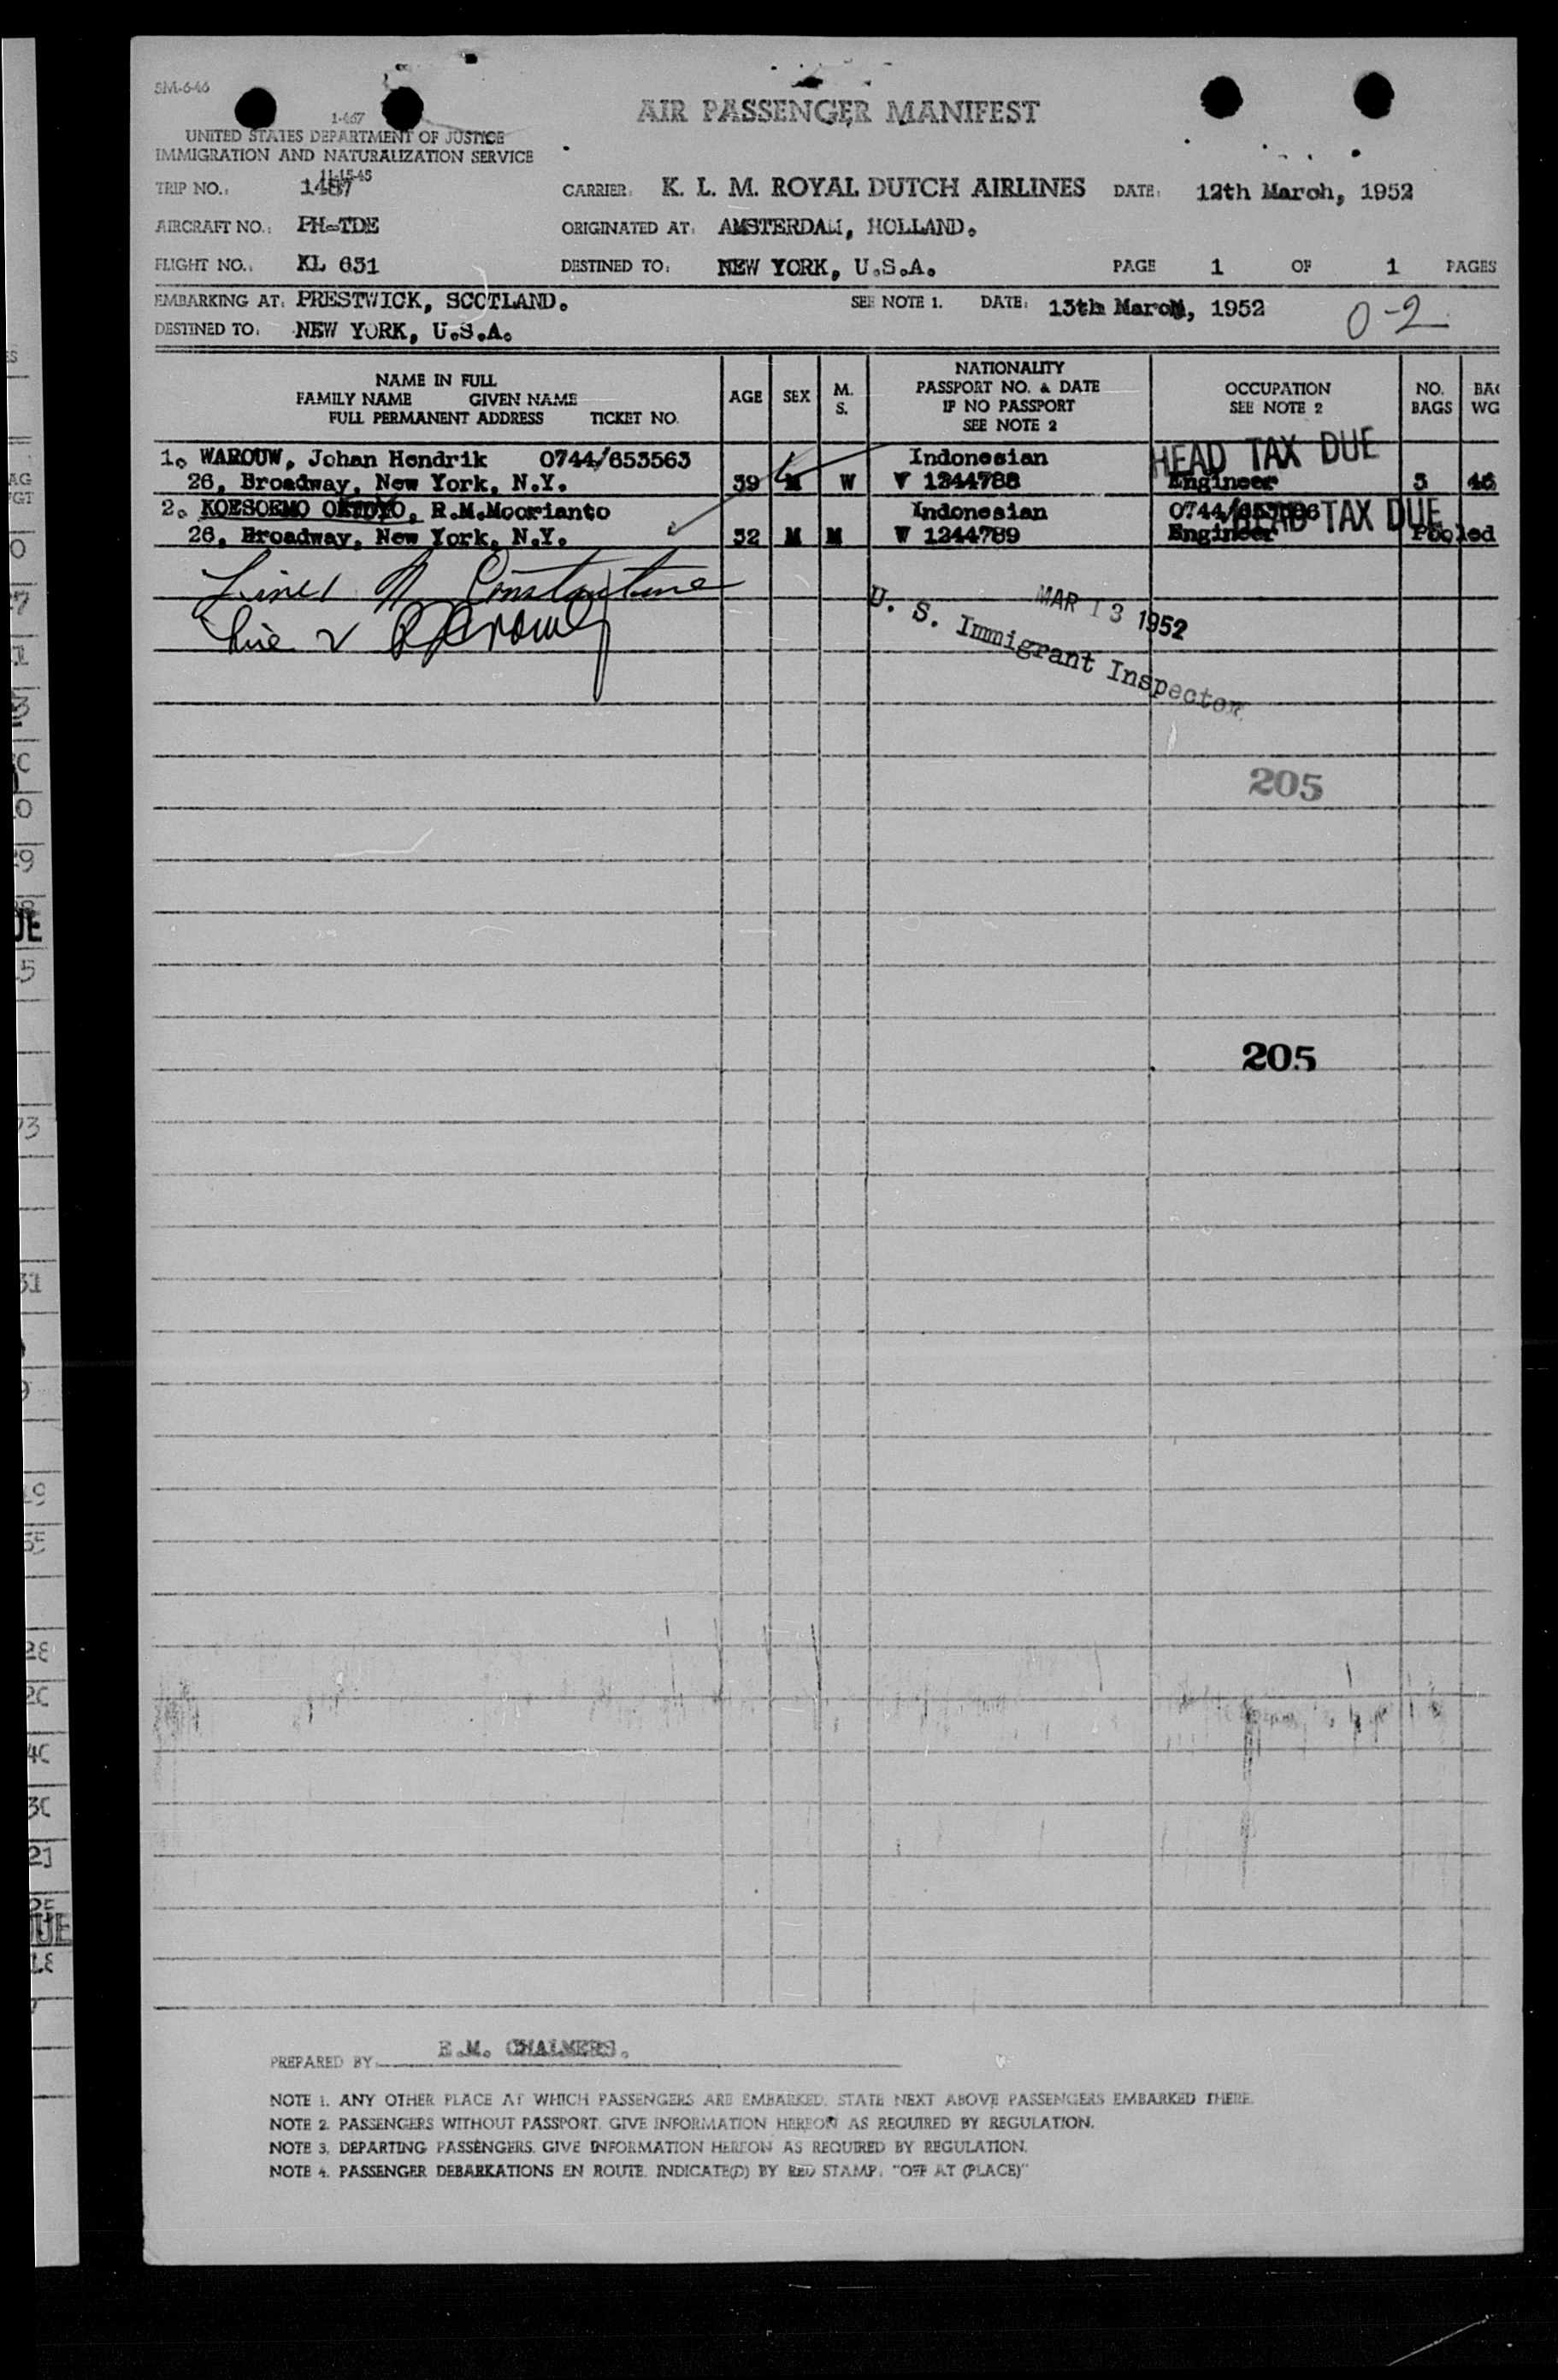 SM-6-46
1-467
UNITED STATES DEPARTMENT OF JUSTICE
IMMIGRATION AND NATURALIZATION SERVICE
11-15-45
AIR PASSENGER MANIFEST
TRIP NO.: 1487 CARRIER: K. L. M. ROYAL DUTCH AIRLINES DATE: 12th March, 1952
AIRCRAFT NO.: PH-TDE ORIGINATED AT: AMSTERDAM, HOLLAND.
FLIGHT NO.: KL 631 DESTINED TO: NEW YORK, U.S.A. PAGE 1 OF 1 PAGES
EMBARKING AT: PRESTWICK, SCOTLAND. SEE NOTE 1. DATE: 13th March, 1952
DESTINED TO: NEW YORK, U.S.A. 0-2
NAME IN FULL
FAMILY NAME GIVEN NAME
FULL PERMANENT ADDRESS TICKET NO.
AGE SEX M. S.
NATIONALITY
PASSPORT NO. & DATE
IF NO PASSPORT
SEE NOTE 2
OCCUPATION
SEE NOTE 2
NO. BAGS
BAG WG
1. WAROUW, Johan Hendrik 0744/653563 Indonesian HEAD TAX DUE
26, Broadway, New York, N.Y. 39 M W V 1244788 Engineer 3 46
2. KOESOEMO OETOYO, R.M.Moorianto Indonesian 0744/ HEAD TAX DUE
26, Broadway, New York, N.Y. 32 M M W 1244789 Engineer Pooled
Line 1 N Constantine
line 2
MAR 13 1952
U. S. Immigrant Inspector
205
205
PREPARED BY E.M. CHALMERS.
NOTE 1. ANY OTHER PLACE AT WHICH PASSENGERS ARE EMBARKED. STATE NEXT ABOVE PASSENGERS EMBARKED THERE.
NOTE 2. PASSENGERS WITHOUT PASSPORT. GIVE INFORMATION HEREON AS REQUIRED BY REGULATION.
NOTE 3. DEPARTING PASSENGERS. GIVE INFORMATION HEREON AS REQUIRED BY REGULATION.
NOTE 4. PASSENGER DEBARKATIONS EN ROUTE. INDICATE(D) BY RED STAMP. "OFF AT (PLACE)"